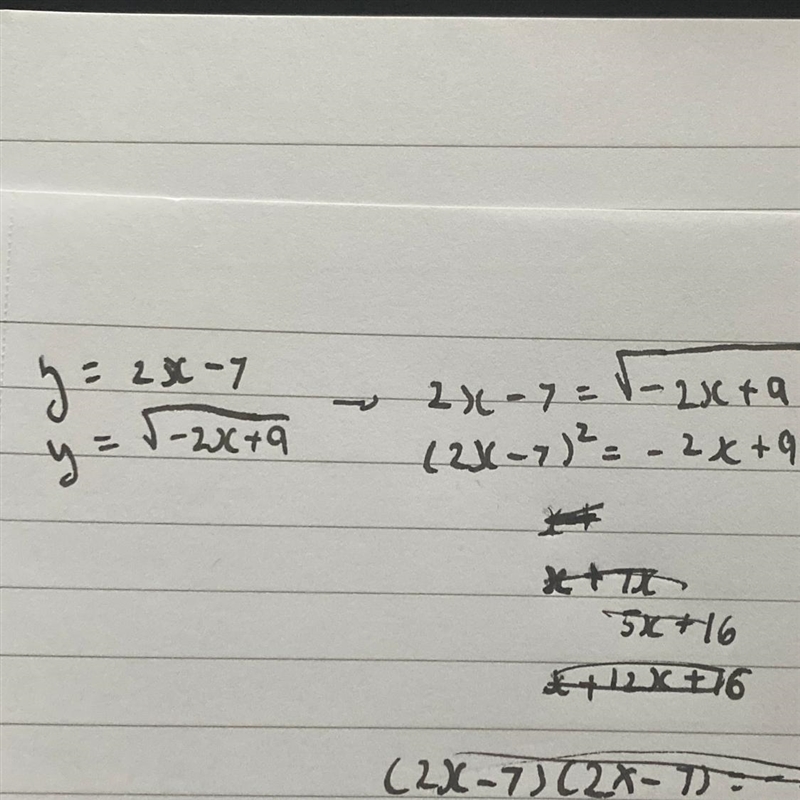 y = 2x - 7
y = √-2x+9
→ 2x - 7 = √-2x+9
(2x-7)² = - 2x+9
x+
x + 7x
5x+16
x+12x+16
(2x-7)(2x-7) = -